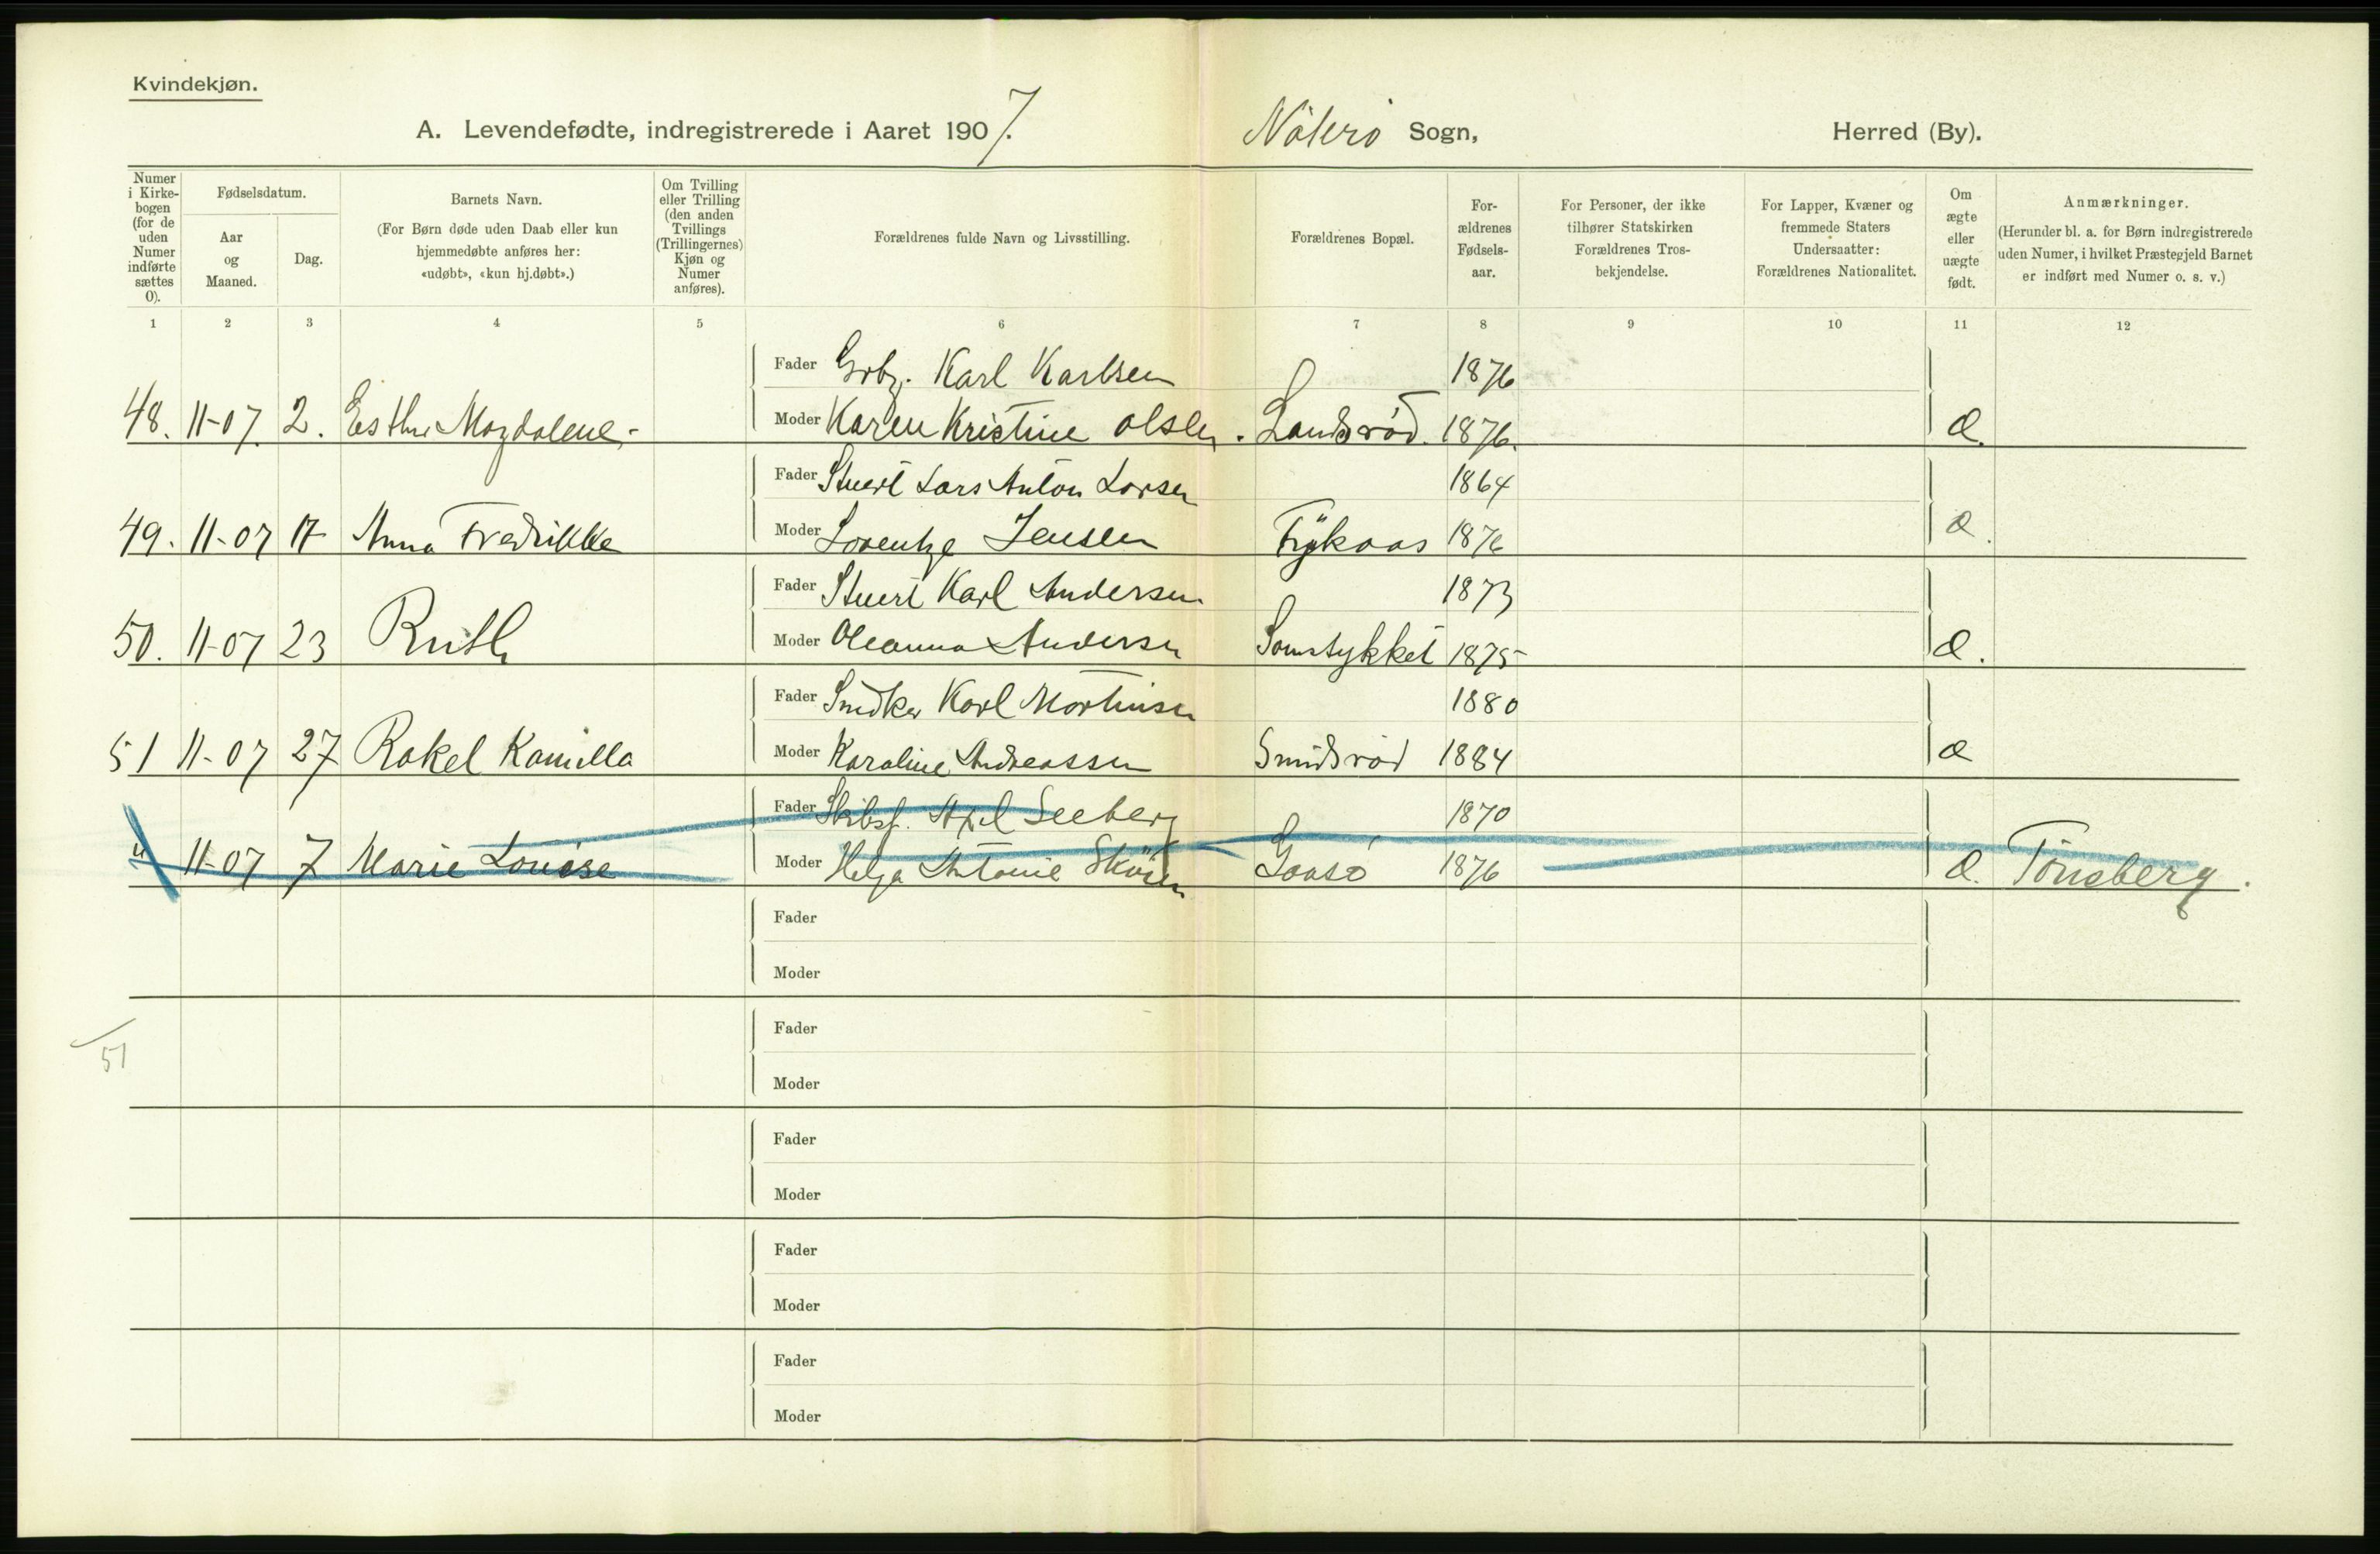 Kvindekjøn.
A. Levendefødte, indregistrerede i Aaret 1907. Nöterö Sogn, Herred (By).
Numer i Kirkebogen (for de uden Numer indførte sættes 0).
Fødselsdatum.
Aar og Maaned.
Dag.
Barnets Navn.
(For Børn døde uden Daab eller kun hjemmedøbte anføres her: «udøbt», «kun hj.døbt».)
Om Tvilling eller Trilling (den anden Tvillings (Trillingernes) Kjøn og Numer anføres).
Forældrenes fulde Navn og Livsstilling.
Forældrenes Bopæl.
Forældrenes Fødselsaar.
For Personer, der ikke tilhører Statskirken Forældrenes Trosbekjendelse.
For Lapper, Kvæner og fremmede Staters Undersaatter: Forældrenes Nationalitet.
Om ægte eller uægte født.
Anmærkninger.
(Herunder bl. a. for Børn indregistrerede uden Numer, i hvilket Præstegjeld Barnet er indført med Numer o. s. v.)
1 2 3 4 5 6 7 8 9 10 11 12
Fader Grbr. Karl Karlsen 1876
48. 11-07. 2. Esther Magdalene - Moder Karen Kristine Olsen. Landsrød. 1876. æ.
Fader Stuert Lars Anton Larsen 1864
49. 11-07 17 Anna Fredrikke Moder Lorentze Jensen 1876 æ.
Fader Stuert Karl Andersen 1873
50. 11-07 23 Ruth Moder Oleanna Andersen Somstykket 1875 æ.
Fader Snedker Karl Martinsen 1880
51 11-07 27 Rakel Kamilla Moder Karoline Andreassen Smidsrød 1884 æ
Fader Skibsf. Axel Seeberg 1870
" 11-07 7 Marie Louise Moder Helga Antonie Gaasø 1876 æ. Tönsberg.
Fader
Moder
Fader
51
Moder
Fader
Moder
Fader
Moder
Fader
Moder